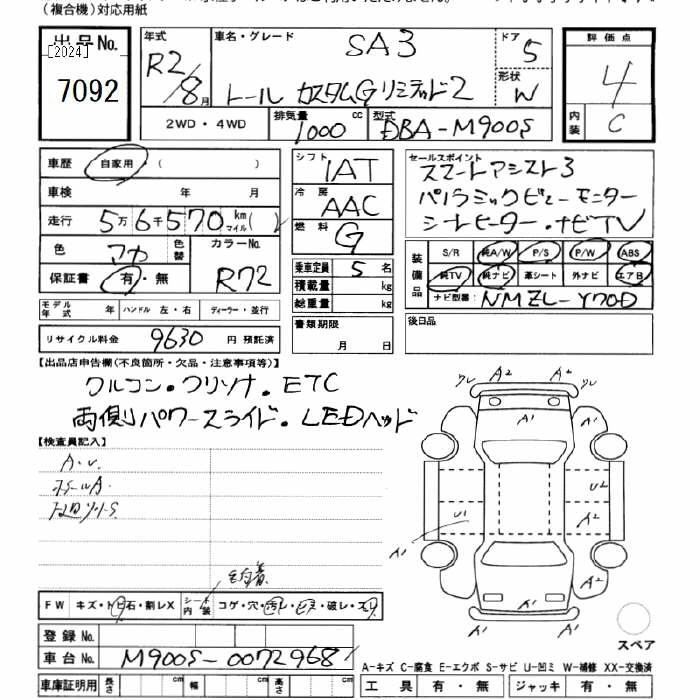 (複合機)対応用紙
出品No.
[2024]
7092
年式
R2/8月
車名・グレード
SA3
トール カスタムGリミテッド2
ドア
5
形状
W
評価点
4
内装
C
2WD・4WD
排気量
1000 cc
型式
DBA-M900S
車歴
自家用・( )
車検 年 月
走行 5万6千570 km マイル( )
色 アカ
色替
カラーNo.
R72
保証書 有・無
シフト
IAT
冷房
AAC
燃料
G
乗車定員 5 名
積載量 kg
総重量 kg
セールスポイント
スマートアシスト3
パノラミックビューモニター
シートヒーター・ナビTV
装備品
S/R 純A/W P/S P/W ABS
純TV 純ナビ 革シート 外ナビ エアB
ナビ型番: NMZL-Y70D
モデル年式 年 ハンドル 左・右 ディーラー・並行
リサイクル料金 9630 円 預託済
書類期限
月 日
後日品
【出品店申告欄(不良箇所・欠品・注意事項等)】
クルコン・クリソナ・ETC
両側パワースライド・LEDヘッド
【検査員記入】
A・U
ホールA
ワレ A2 A2 ワレ
A1
U2
U1 A2
A1
A1 A2
A1 A1
FW キズ・トビ石・割レX
シート内装 コゲ・穴・汚レ・ハゲ・破レ・スレ
登録No.
車台No. M900S-0072968
スペア
A-キズ C-腐食 E-エクボ S-サビ U-凹ミ W-補修 XX-交換済
車庫証明用 長さ cm 幅 cm 高さ cm
工具 有・無 ジャッキ 有・無